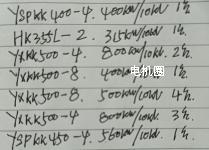 YSPKK400-4. 400kw/10kv 1台
HK355L-2. 315kw/10kv. 1台.
YXKK500-4. 800kw/10kv. 2台
YXKK500-8. 400kw/10kv 1台
YXKK500-8. 500kw/10kv 4台.
YXKK500-4 800kw/10kv 3台.
YSPKK450-4. 560kw/10kv. 1台.
电机圈